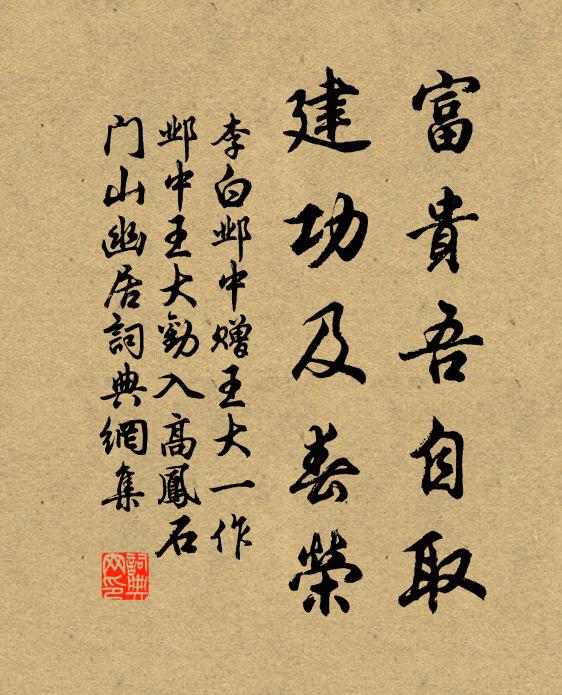 富貴吾自取
建功及春榮
李白邺中赠王大一作
邺中王大勸入高鳳石
门山幽居詞典網集
詞典
网印